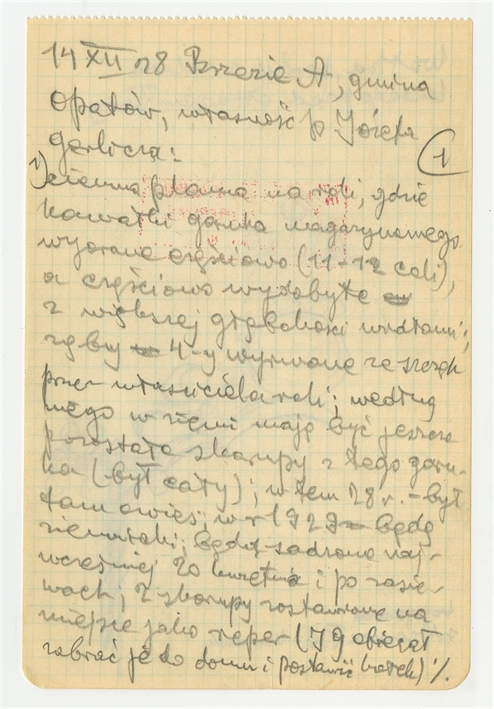 14 XII 28 Brzezie A, gmina
Opatów, własność p Józefa
Garlicza:
1
1) ciemna plama na roli, gdzie
kawałki garnka magazynowego
wyorane częściowo (11-12 cali),
a częściowo wydobyte
z większej głębokości widłami;
zęby 4-y wyrwane ze szczęk
przez właściciela roli; według
niego w ziemi mają być jeszcze
pozostałe skorupy z tego garn-
ka (był cały); w tem 28 r. - był
tam owies; w r 1929 będą
ziemniaki; będą sadzone naj-
wcześniej 20 kwietnia i po zasie-
wach; 2 skorupy zostawione na
miejscu jako reper (JG obiecał
zabrać je do domu i postawić kołek) ./.